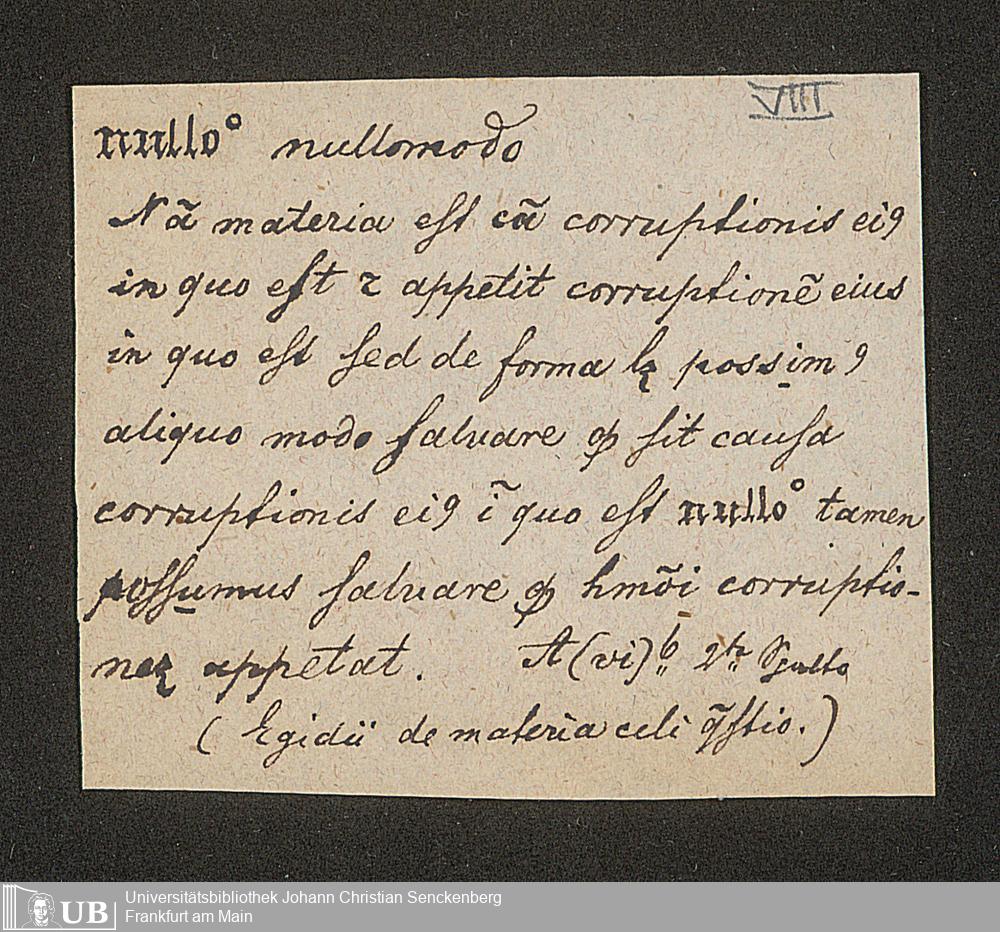 VIII
nullo° nullomodo
Nã materia eſt cã corruptionis eiꝰ
in quo eſt ꝛ appetit corruptionẽ eius
in quo eſt ſed de forma lꝫ possimꝰ
aliquo modo ſaluare ꝙ ſit cauſa
corruptionis eiꝰ ĩ quo eſt nullo° tamen
poſſumus ſaluare ꝙ hmõi corruptio-
neꝫ appetat. A (vi)b
(Egidii de materia celi q̃ſtio.)
UB Universitätsbibliothek Johann Christian Senckenberg
Frankfurt am Main